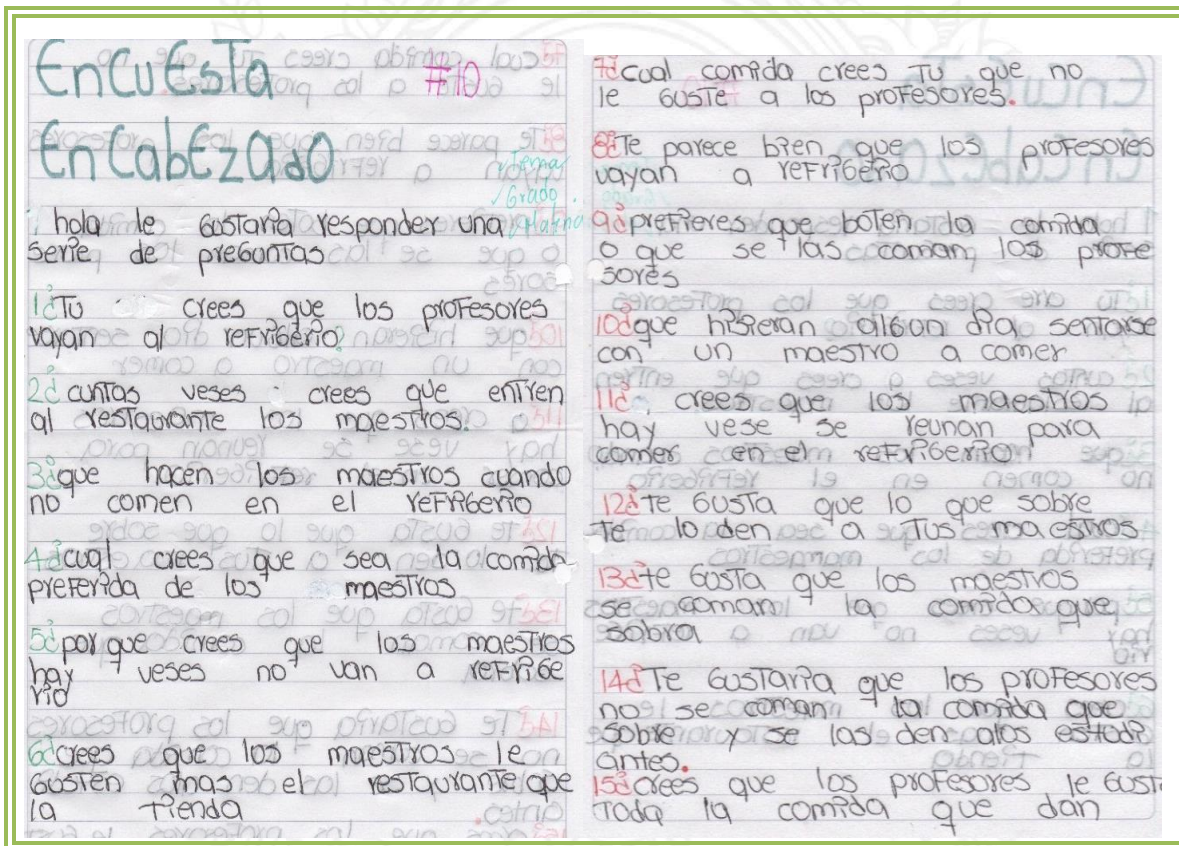 EnCuEsTa #10
EnCabEzado
✓Tema
✓Grado
hola le GUSTaRia responder una
serie de preGunTas
1¿TU crees que los profesores
vayan al reFriGerio?
2¿ cunTas veses crees que enTren
al resTaurante los maesTros.
3¿que hacen los maesTros cuando
no comen en el reFriGerio
4¿cual crees que sea la comida
preFerida de los maesTros
5¿por que crees que los maesTros
hay veses no van a reFriGe
rio
6¿crees que los maesTros le
GusTen mas el resTaurante que
la Tienda
7¿cual comida crees TU que no
le GUSTe a los proFesores.
8¿Te parece bien que los proFesores
vayan a reFriGerio
9¿preFieres que boTen la comida
o que se las coman los proFe
sores
10¿que hisieran alGun dia senTarse
con un maesTro a comer
11¿ crees que los maesTros
hay vese se reunan para
comer en el reFriGerio
12¿Te GusTa que lo que sobre
Te lo den a Tus maesTros
13¿Te GusTa que los maesTros
se coman la comida que
sobra
14¿Te GusTaria que los proFesores
no se coman la comida que
sobre y se las den alos estudi
antes.
15¿crees que los proFesores le GusT
Toda la comida que dan